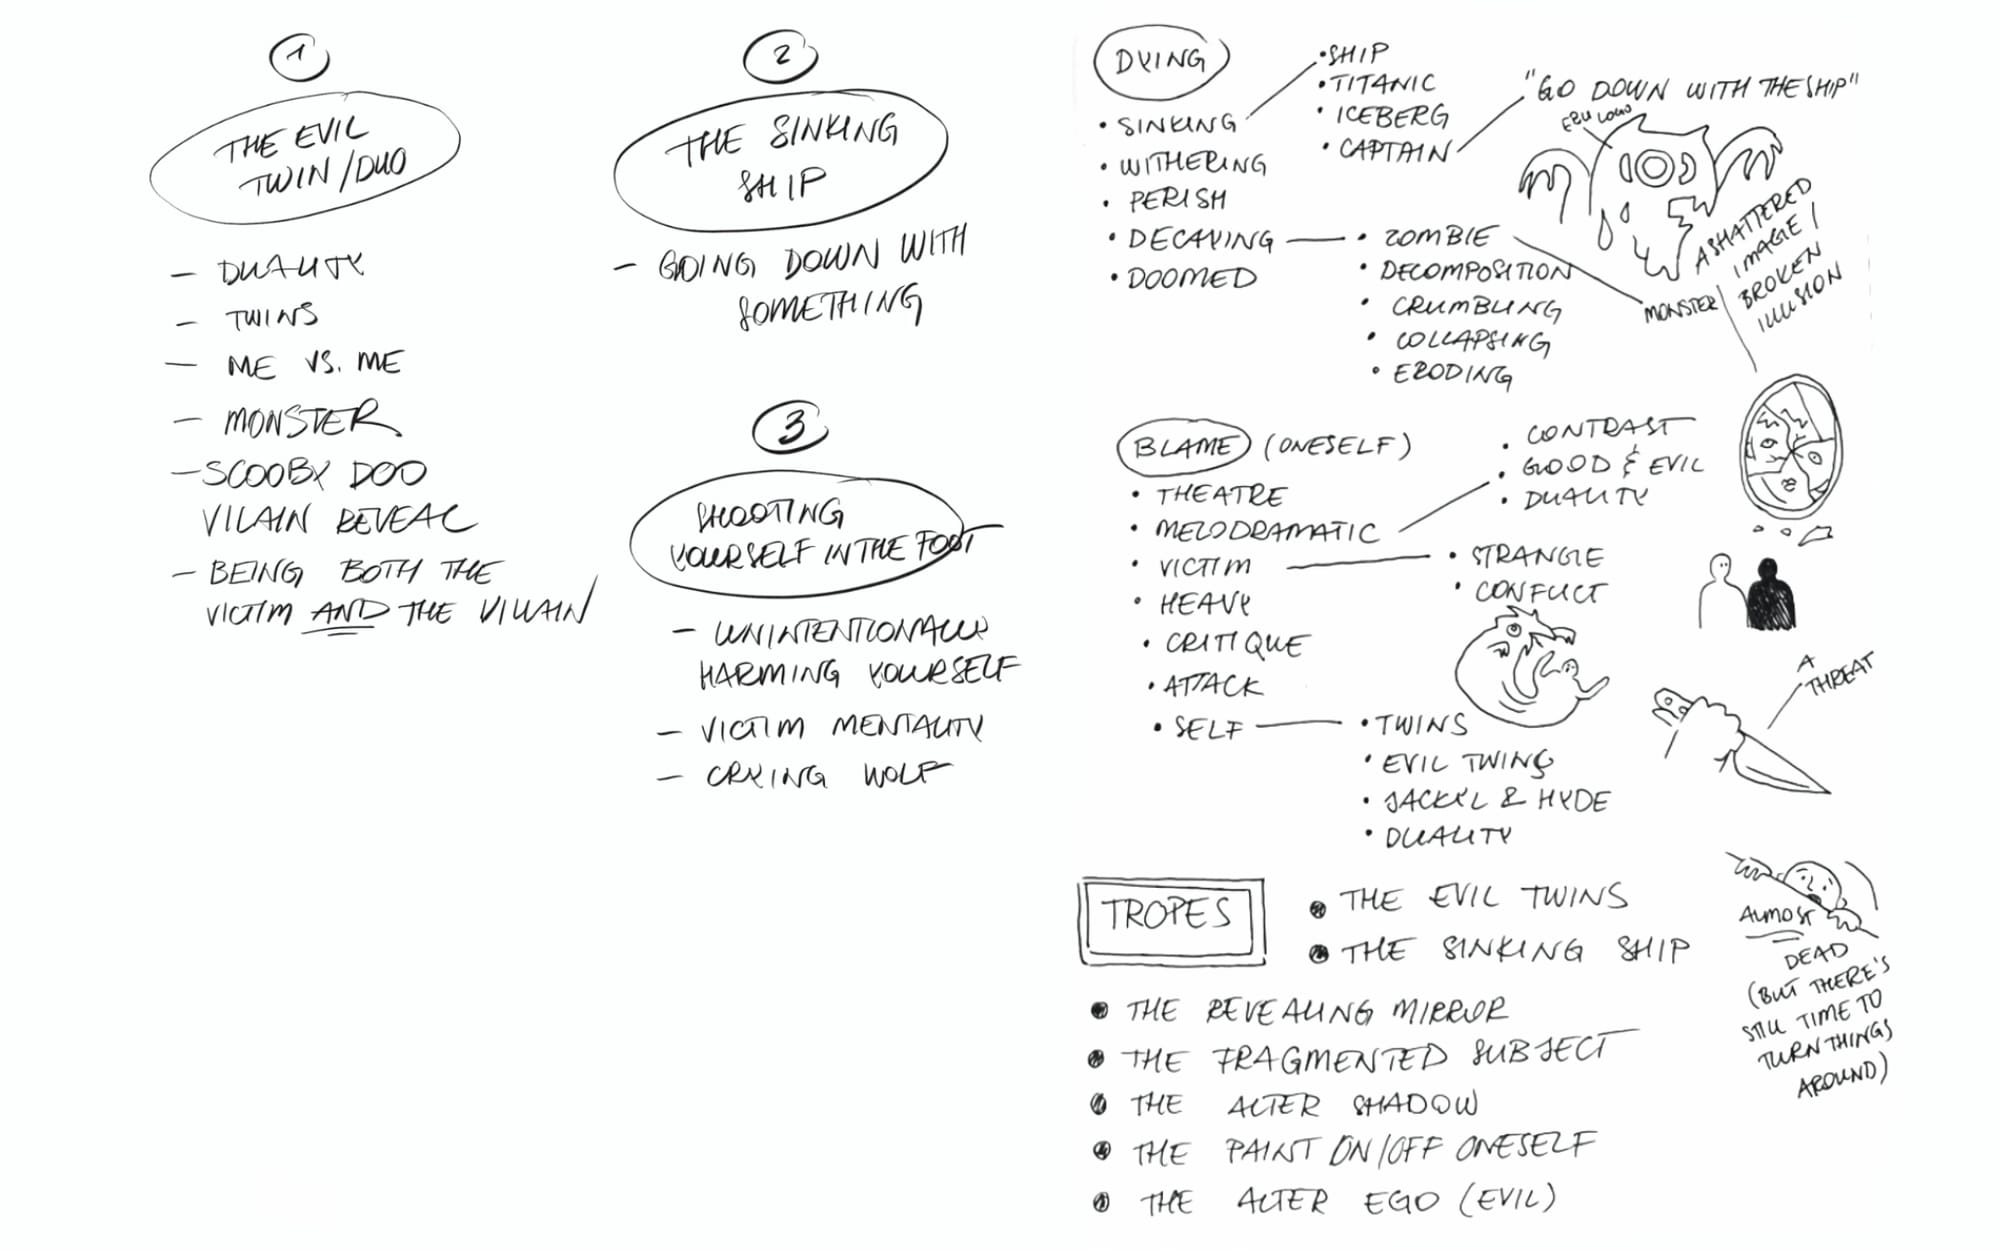 1
THE EVIL
TWIN/DUO
- DUALITY
- TWINS
- ME VS. ME
- MONSTER
- SCOOBY DOO
VILAIN REVEAL
- BEING BOTH THE
VICTIM AND THE VILLAIN
2
THE SINKING
SHIP
- GOING DOWN WITH
SOMETHING
3
SHOOTING
YOURSELF IN THE FOOT
- UNINTENTIONALLY
HARMING YOURSELF
- VICTIM MENTALITY
- CRYING WOLF
DYING
• SINKING
• WITHERING
• PERISH
• DECAYING
• DOOMED
• SHIP
• TITANIC
• ICEBERG
• CAPTAIN
"GO DOWN WITH THE SHIP"
EBU LOGO
• ZOMBIE
• DECOMPOSITION
• CRUMBLING
• COLLAPSING
• ERODING
MONSTER
A SHATTERED
IMAGE /
BROKEN
ILLUSION
BLAME (ONESELF)
• THEATRE
• MELODRAMATIC
• VICTIM
• HEAVY
• CRITIQUE
• ATTACK
• SELF
• CONTRAST
• GOOD & EVIL
• DUALITY
• STRANGLE
• CONFLICT
• TWINS
• EVIL TWINS
• JACKYL & HYDE
• DUALITY
A
THREAT
TROPES
• THE EVIL TWINS
• THE SINKING SHIP
• THE REVEALING MIRROR
• THE FRAGMENTED SUBJECT
• THE ALTER SHADOW
• THE PAINT ON/OFF ONESELF
• THE ALTER EGO (EVIL)
ALMOST
DEAD
(BUT THERE'S
STILL TIME TO
TURN THINGS
AROUND)